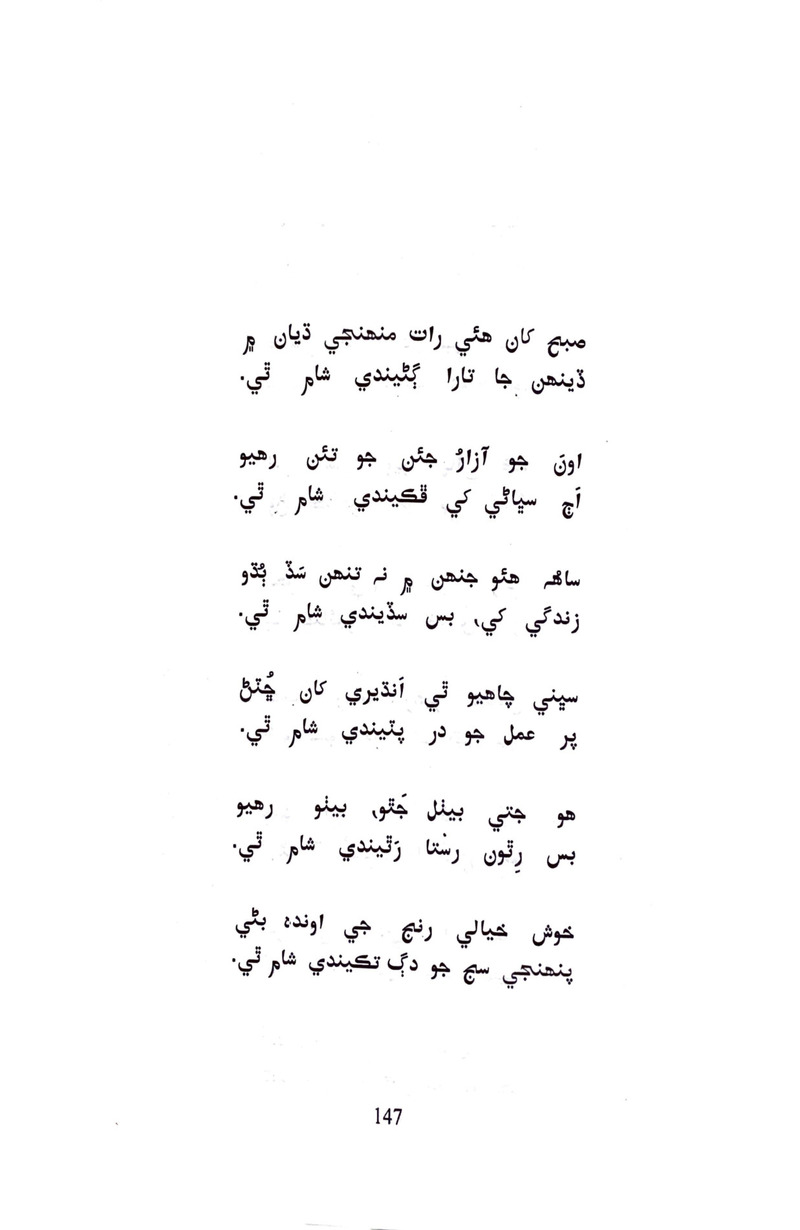 صبح کان هئي رات منهنجي ڌيان ۾
ڏينهن جا تارا ڳڻيندي شام ٿي.
اونَ جو آزارُ جئن جو تئن رهيو
اَڄ سياڻي کي ڦڪيندي شام ٿي.
ساهُه هئو جنهن ۾ نہ تنهن سَڏ ٻُڌو
زندگي کي، بس سڏيندي شام ٿي.
سڀني چاهيو ٿي اَنڌيري کان ڇُٽڻ
پر عمل جو در پٽيندي شام ٿي.
هو جتي بيٺل جَٿو، بيٺو رهيو
بس رِٿون رسْتا رَٿيندي شام ٿي.
خوش خيالي رنج جي اونده بڻي
پنهنجي سڄ جو دڳ تڪيندي شام ٿي.
147